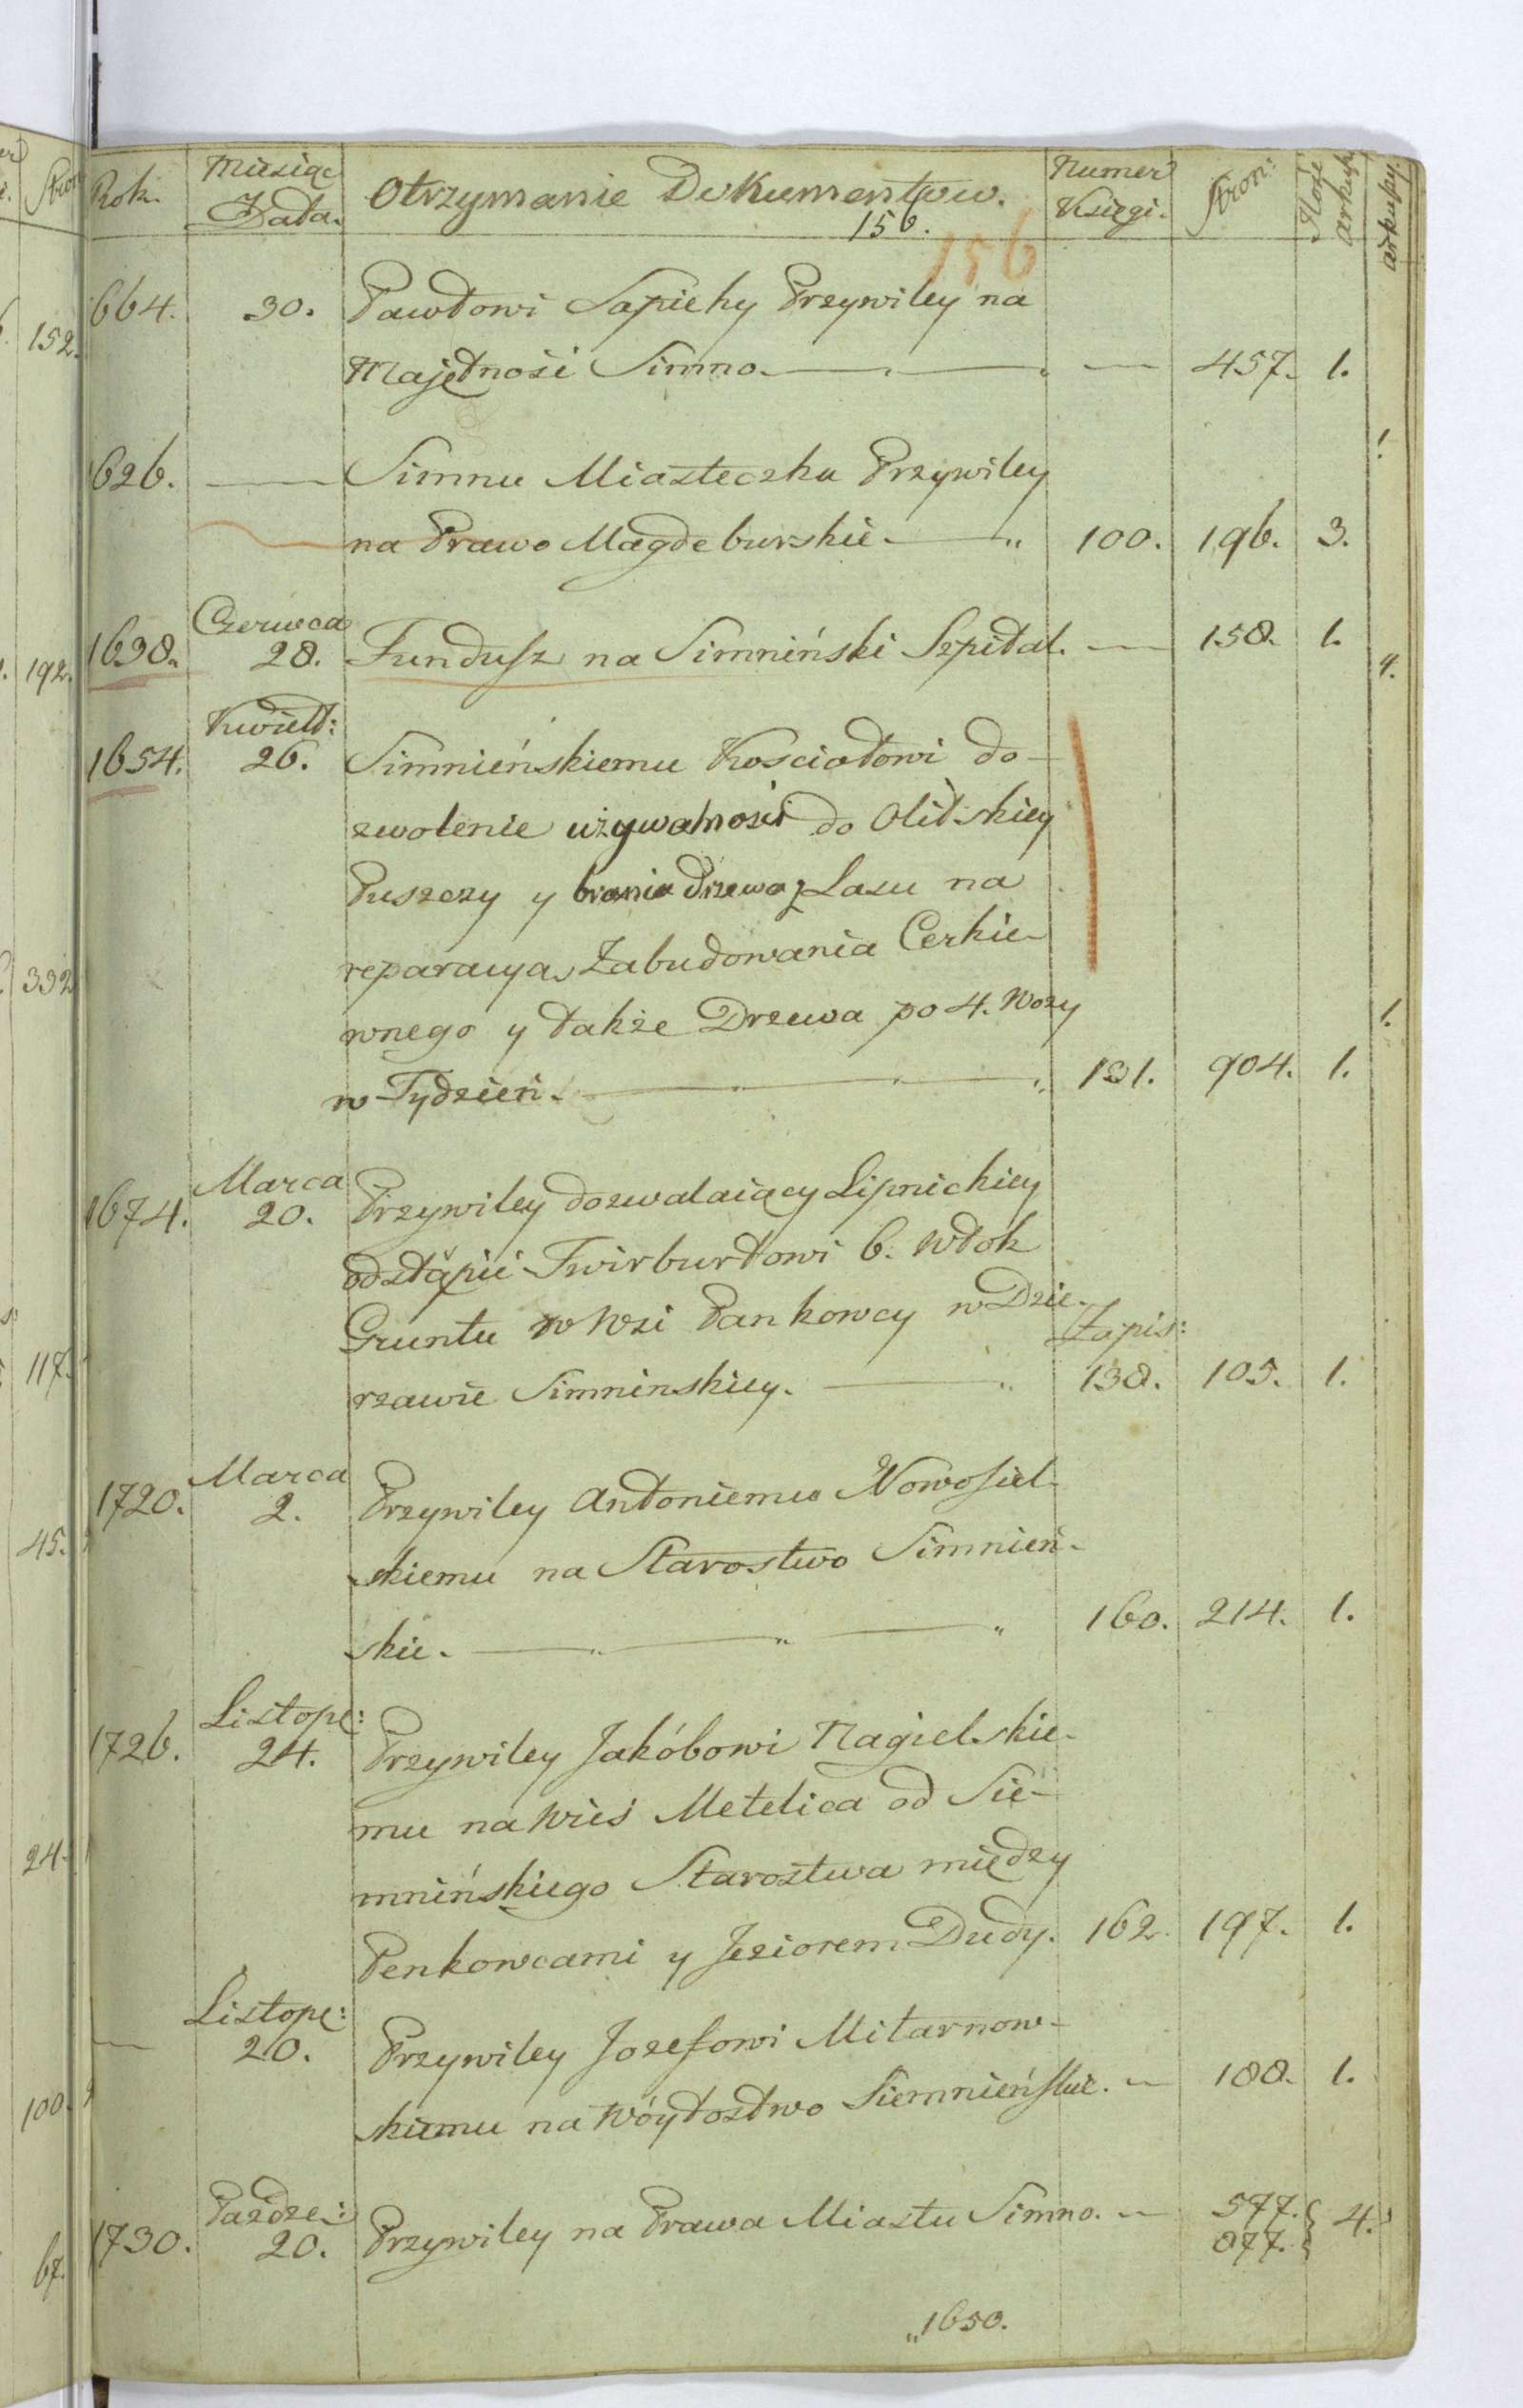 Rok. Miesiąc Data. Otrzymanie Dokumentow. Numer Księgi. Stron: Ilość arkuszy
156.
156
664. 30. Pawłowi Sapiehy Przywiley na
Majętność Simno. — 457. 1.
1626. — Simnu Miasteczku Przywiley
na Prawo Magdeburskie — 100. 196. 3.
1638. Czerwca 28. Fundusz na Simniński Szpital. — 158. 1.
1654. Kwiet: 26. Simnieńskiemu Kosciołowi do-
zwolenie używalności do Olitskiey
Puszczy y brania drzewa z Lasu na
reparacyą, Zabudowania Cerkie-
wnego y także Drzewa po 4. Wozy
w Tydzień. — 131. 904. 1.
1674. Marca 20. Przywiley dozwalaiący Lipnickiey
odstąpić Twirburtowi 6. Włok
Gruntu w Wsi Pankowcy w Dzie-
rzawie Simninskiey. — Zapis: 138. 105. 1.
1720. Marca 2. Przywiley Antoniemu Nowosiel-
skiemu na Starostwo Simnień-
skie. — 160. 214. 1.
1726. Listop: 24. Przywiley Jakóbowi Nagielskie-
mu na Wieś Metelica od Sie-
mnińskiego Starostwa między
Penkowcami y Jeziorem Dudy. 162. 197. 1.
— Listop: 20. Przywiley Jozefowi Mitarnow-
skiemu na Wóytostwo Siemnieńskie. — 188. 1.
1730. Pazdze: 20. Przywiley na Prawa Miastu Simno. — 577. 877. } 4.
1650.